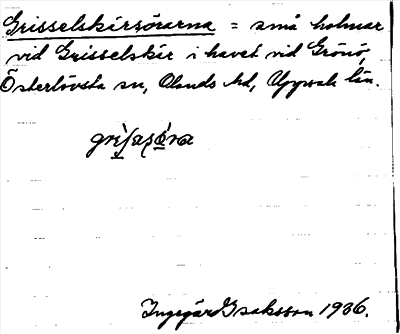 Grisselskärsörarna = små holmar
vid Grisselskär i havet vid Grönö,
Österlövsta sn, Olands hd, Uppsala län.
Ingegär Isaksson 1936.